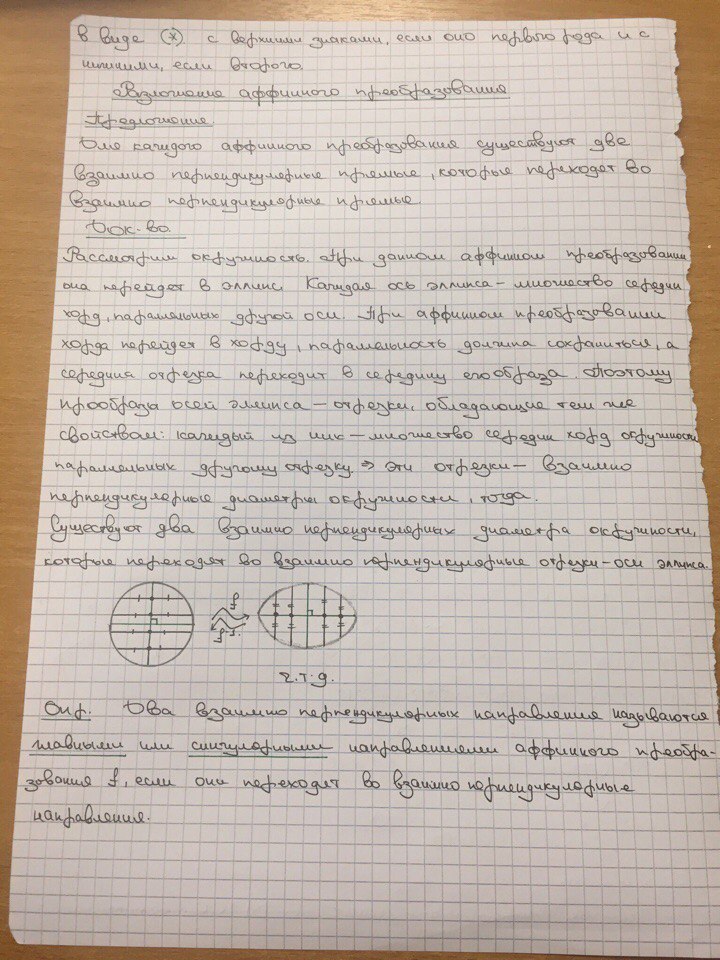 в виде (*) с верхними знаками, если оно первого рода и с
нижними, если второго.
Разложение аффинного преобразования
Предложение.
Для каждого аффинного преобразования существуют две
взаимно перпендикулярные прямые, которые переходят во
взаимно перпендикулярные прямые.
Док-во.
Рассмотрим окружность. При данном аффинном преобразовании
она перейдет в эллипс. Каждая ось эллипса – множество середин
хорд, параллельных другой оси. При аффинном преобразовании
хорда перейдет в хорду, параллельность должна сохраниться, а
середина отрезка переходит в середину его образа. Поэтому
прообраза осей эллипса – отрезки, обладающие тем же
свойством: каждый из них – множество середин хорд окружности
параллельных другому отрезку ⇒ эти отрезки – взаимно
перпендикулярные диаметры окружности, тогда.
Существуют два взаимно перпендикулярных диаметра окружности,
которые переходят во взаимно перпендикулярные отрезки-оси эллипса.
f
ч.т.д.
Опр. Два взаимно перпендикулярных направления называются
главными или сингулярными направлениями аффинного преобра-
зования f, если они переходят во взаимно перпендикулярные
направления.